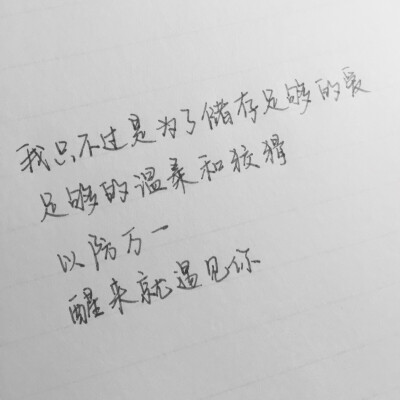 我只不过是为了储存足够的爱
足够的温柔和狡猾
以防万一
醒来就遇见你